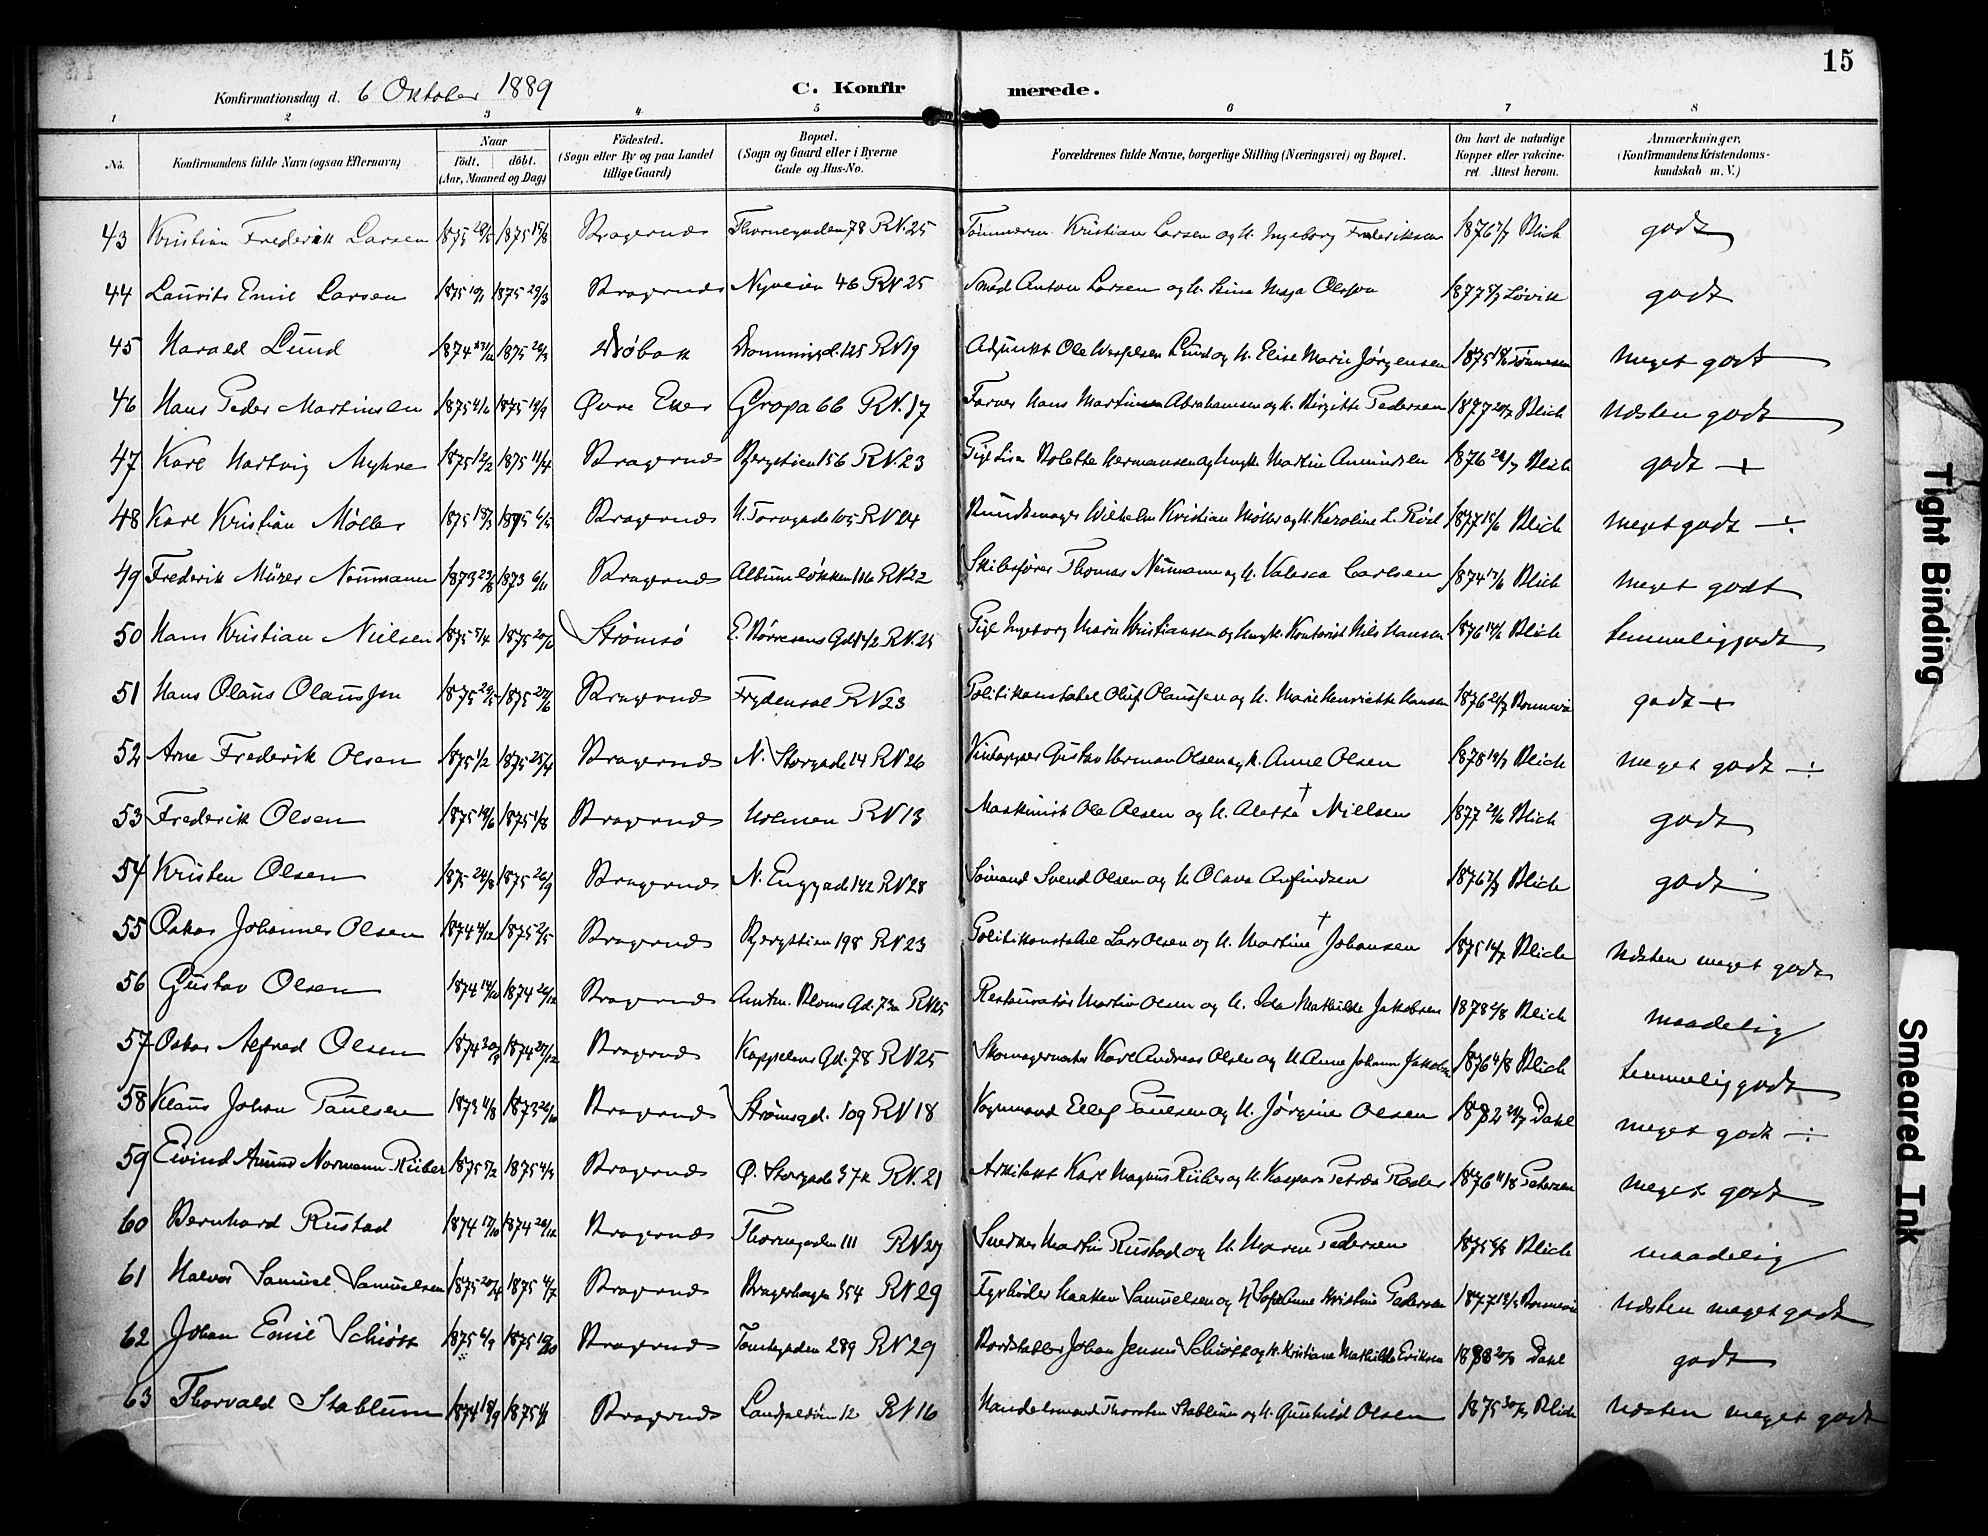 15
Konfirmationsdag d. 6 Oktober 1889 C. Konfirmerede.
1 2 3 4 5 6 7 8
No. Konfirmandens fulde Navn (ogsaa Efternavn) Naar födt. döbt. (Aar, Maaned og Dag) Födested. (Sogn eller By og paa Landet tillige Gaard) Bopæl. (Sogn og Gaard eller i Byerne Gade og Hus-No. Forældrenes fulde Navne, borgerlige Stilling (Næringsvei) og Bopæl. Om havt de naturlige Kopper eller vakcineret. Attest herom. Anmærkninger, (Konfirmandens Kristendomskundskab m. V.)
43 Kristian Frederik Larsen 1875 1875 15/8 Bragernæs Thornegaden 78 RN.25 Tømmerm. Kristian Larsen og H. Ingeborg Frederiksen 1876 Blich godt
44 Laurits Emil Larsen 1875 10/1 1875 29/3 Bragernæs Nyveien 46 RN 25 Smed Anton Larsen og H. Stina Maja Olsson 1877 Løvik godt
45 Harald Lund 1874 1875 Drøbak 125 RN 19 Adjunkt Ole Lund og H. Elise Marie Jørgensen 1875 Tønnesen meget godt
46 Hans Peder Martinsen 1875 1875 19/9 Øvre Eker Gropa 66 RN.17 Farver Hans Martinsen Abrahamsen og H. Birgitte Pedersen 1877 Blich næsten godt
47 Karl Hartvig Myhre 1875 12/2 1875 11/4 Bragernæs Bergstien 156 RN.23 Pige Lisa Bolette Hermansen og Ungk. Martin Amundsen 1876 Blich godt +
48 Karl Kristian Møller 1875 18/3 1875 6/5 Bragernæs N. Torvgade 105 RN 24 Buntmager Wilhelm Kristian Møller og H. Karoline L. Rød 1877 Blich meget godt ÷
49 Frederik Mürer Neumann 1873 1873 Bragernæs Albumsløkken 116 RN 22 Skibsfører Thomas Neumann og H. Valesca Carlsen 1874 Blich meget godt
50 Hans Kristian Nielsen 1875 5/4 1875 20/6 Strømsø E. Børresens Gd. RN.25 Pige Ingeborg Marie Kristiansen og Ungk. Kontorist Nils Hansen 1876 Blich temmelig godt
51 Hans Olaus Olaussen 1875 1875 27/6 Bragernæs Frydensal RN 23 Politikonstabel Oluf Olaussen og H. Marie Henriette Hansen 1876 godt +
52 Arne Frederik Olsen 1875 1/2 1875 25/4 Bragernæs N. Storgade 14 RN 26 Vintapper Gustav Herman Olsen og H. Anne Olsen 1878 Blich meget godt ÷
53 Frederik Olsen 1875 1875 1/8 Bragernæs Holmen RN 13 Maskinist Ole Olsen og H. Alette † Nielsen 1877 Blich godt
54 Kristen Olsen 1875 24/8 1875 26/9 Bragernæs N. Enggade 142 RN 28 Sømand Svend Olsen og H. Olava Arfindsen 1876 Blich godt
55 Oskar Johannes Olsen 1874 4/12 1875 2/5 Bragernæs Bergstien 198 RN 23 Politikonstabel Lars Olsen og H. Martine † Johansen 1875 14/7 Blich næsten meget godt
56 Gustav Olsen 1874 14/10 1874 26/12 Bragernæs Amtm. Bloms Gd. 73a RN 25 Restauratør Martin Olsen og H. Ida Mathilde Jakobsen 1878 Blich maadelig
57 Oskar Alfred Olsen 1874 1874 27/12 Bragernæs Kappelens Gd. 78 RN 25 Skomagermester Karl Andreas Olsen og H. Anne Johanne Jakobsen 1876 4/8 Blich temmelig godt
58 Klaus Johan Paulsen 1873 11/8 1873 26/10 Bragernæs Strømsgd. 109 RN 18 Vognmand Ellef Paulsen og H. Jørgine Olsen 1882 Dahl meget godt ÷
59 Eivind Amund Normann Riiber 1875 1875 4/3 Bragernæs Ø. Storgade 37a RN.21 Arkitekt Karl Magnus Riiber og H. Kaspara Petrea Røder 1876 11/8 Petersen meget godt
60 Bernhard Rustad 1874 17/10 1874 26/12 Bragernæs Thornegaden 111 RN 27 Snedker Martin Rustad og H. Maren Pedersen 1875 Blich maadelig
61 Halvor Samuel Samuelsen 1875 20/4 1875 4/7 Bragernæs Bragerhagen 354 RN 29 Fyrbøder Haakon Samuelsen og H. Sofie Anne Kristine Pedersen 1877 næsten meget godt
62 Johan Emil Schiøtt 1875 6/9 1875 Bragernæs Tomtegaden 289 RN 29 Bordstabler Johan Jensen Schiøtt og H. Kristiane Mathilde Eriksen 1888 Dahl godt
63 Thorvald Stablum 1874 18/9 1875 1/1 Bragernæs Landfaldøen 12 RN 16 Handelsmand Thorsten Stablum og H. Gunhild Olsen 1875 Blich næsten meget godt
Tight Binding
Smeared Ink